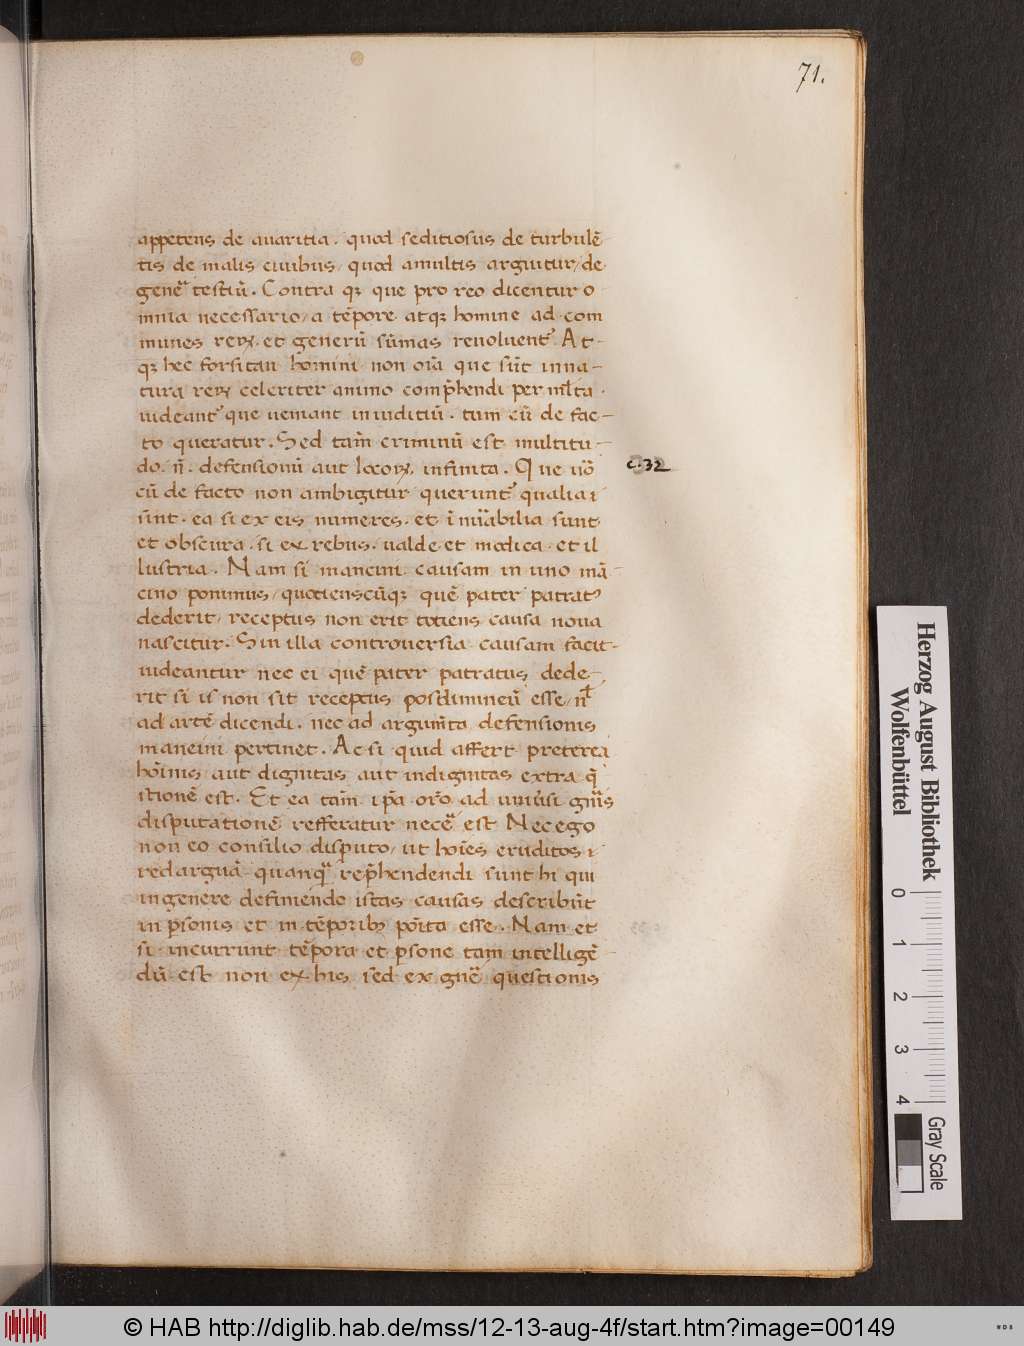 71.
appetens de auaritia. quod seditiosus de turbulē
tis de malis ciuibus/ quod amultis arguitur/ de
genē testiū. Contra qꝫ que pro reo dicentur o
mnia necessario/ a tēpore atqꝫ homine ad com
munes reꝝ. et generū sūmas reuoluent̉. At-
qꝫ hec forsitan homini non oīa que sūt inna-
tura reꝝ celeriter animo comp̄hendi per ml̄ta.
uideant̉ que ueniant in iuditiū. tum cū de fac-
to queratur. Sed tam̄ criminū est multitu-
do. n̄. defensionū aut locoꝝ. infinita. Que uō
c. 32
cū de facto non ambigitur querunt̉ qualia i
sint. ea si ex eis numeres. et ī nūabilia sunt
et obscura. si ex rebus. ualde et modica. et il
lustria. Nam si mancini causam in uno mā
cino ponimus/ quotienscūqꝫ quē pater patrat̉
dederit/ receptus non erit totiens causa noua
nascitur. Sin illa controuersia causam facit-
uideantur nec ei quē pater patratus dede-
rit si is non sit receptus posdimineū esse/ nl̄
ad artē dicendi. nec ad argum̄ta defensionis
mancini pertinet. Ac si quid affert preterea
hōinis aut dignitas aut indignitas extra q̄
stionē est. Et ea tam̄ ipā orō ad uniūsi gn̄is
disputationē refferatur necē est Nec ego
non eo consilio disputo/ ut hoīes eruditos i
redarguā quanqᷓ rep̄hendendi sunt hi qui
in genere definiendo istas causas describūt
in p̄sonis et in tēporibꝫ pōita esse. Nam et
si incurrunt tēpora et p̄sone tam̄ intelligē-
dū est non ex his sed ex gnē questionis
Herzog August Bibliothek
Wolfenbüttel
0 1 2 3 4
Gray Scale
© HAB http://diglib.hab.de/mss/12-13-aug-4f/start.htm?image=00149